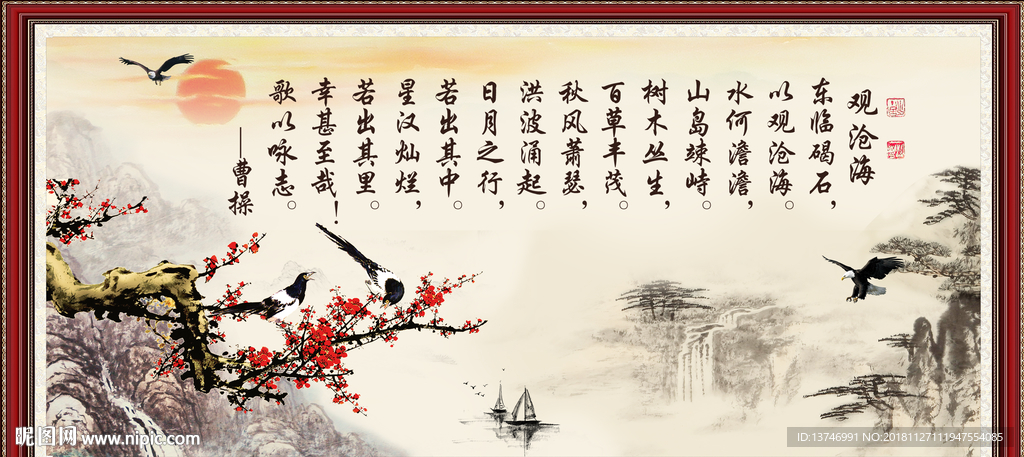 观沧海
东临碣石，
以观沧海。
水何澹澹，
山岛竦峙。
树木丛生，
百草丰茂。
秋风萧瑟，
洪波涌起。
日月之行，
若出其中。
星汉灿烂，
若出其里。
幸甚至哉！
歌以咏志。
—曹操
昵图网 www.nipic.com
ID:13746991 NO:20181127111947554085